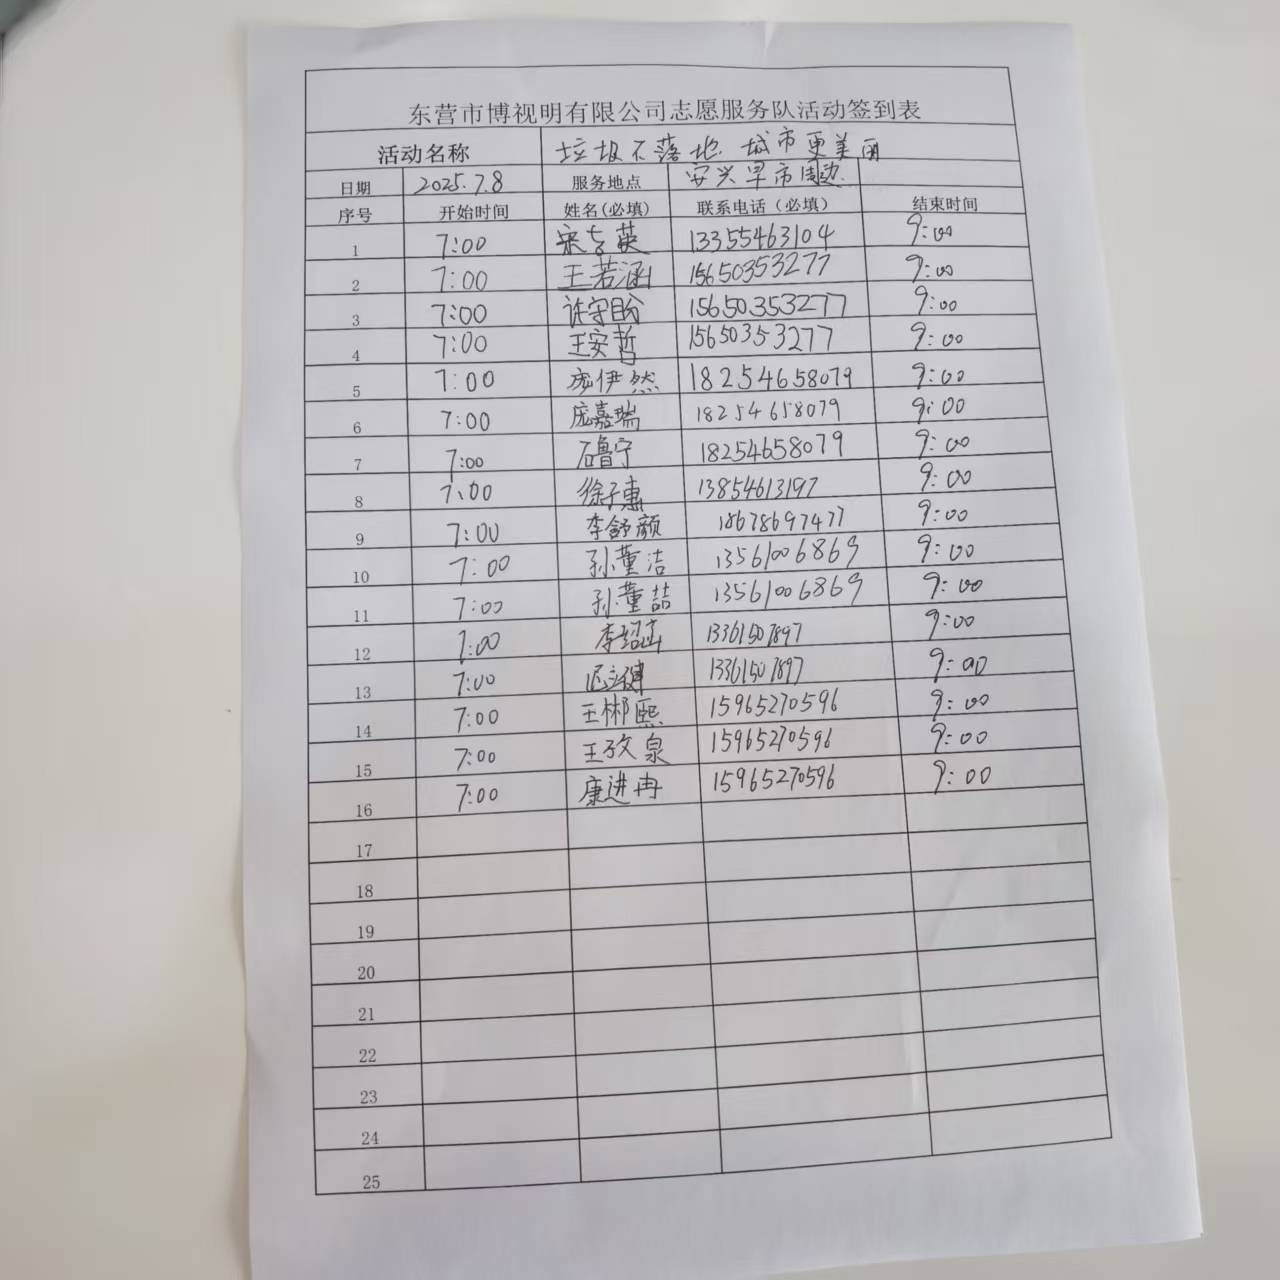 东营市博视明有限公司志愿服务队活动签到表
活动名称 垃圾不落地 城市更美丽
日期 2025.7.8 服务地点 安兴早市周边
序号 开始时间 姓名(必填) 联系电话（必填） 结束时间
1 7:00 宋吉英 13355463104 9:00
2 7:00 王若涵 15650353277 9:00
3 7:00 许守盼 15650353277 9:00
4 7:00 王安哲 15650353277 9:00
5 7:00 庞伊然 18254658079 9:00
6 7:00 庞嘉瑞 18254658079 9:00
7 7:00 石鲁宁 18254658079 9:00
8 7:00 徐子惠 13854613197 9:00
9 7:00 李舒颜 18678697477 9:00
10 7:00 孙董洁 13561006869 9:00
11 7:00 孙董喆 13561006869 9:00
12 7:00 13361507897 9:00
13 7:00 13361507897 9:00
14 7:00 王彬熙 15965270596 9:00
15 7:00 王孜泉 15965270596 9:00
16 7:00 康进冉 15965270596 9:00
17
18
19
20
21
22
23
24
25